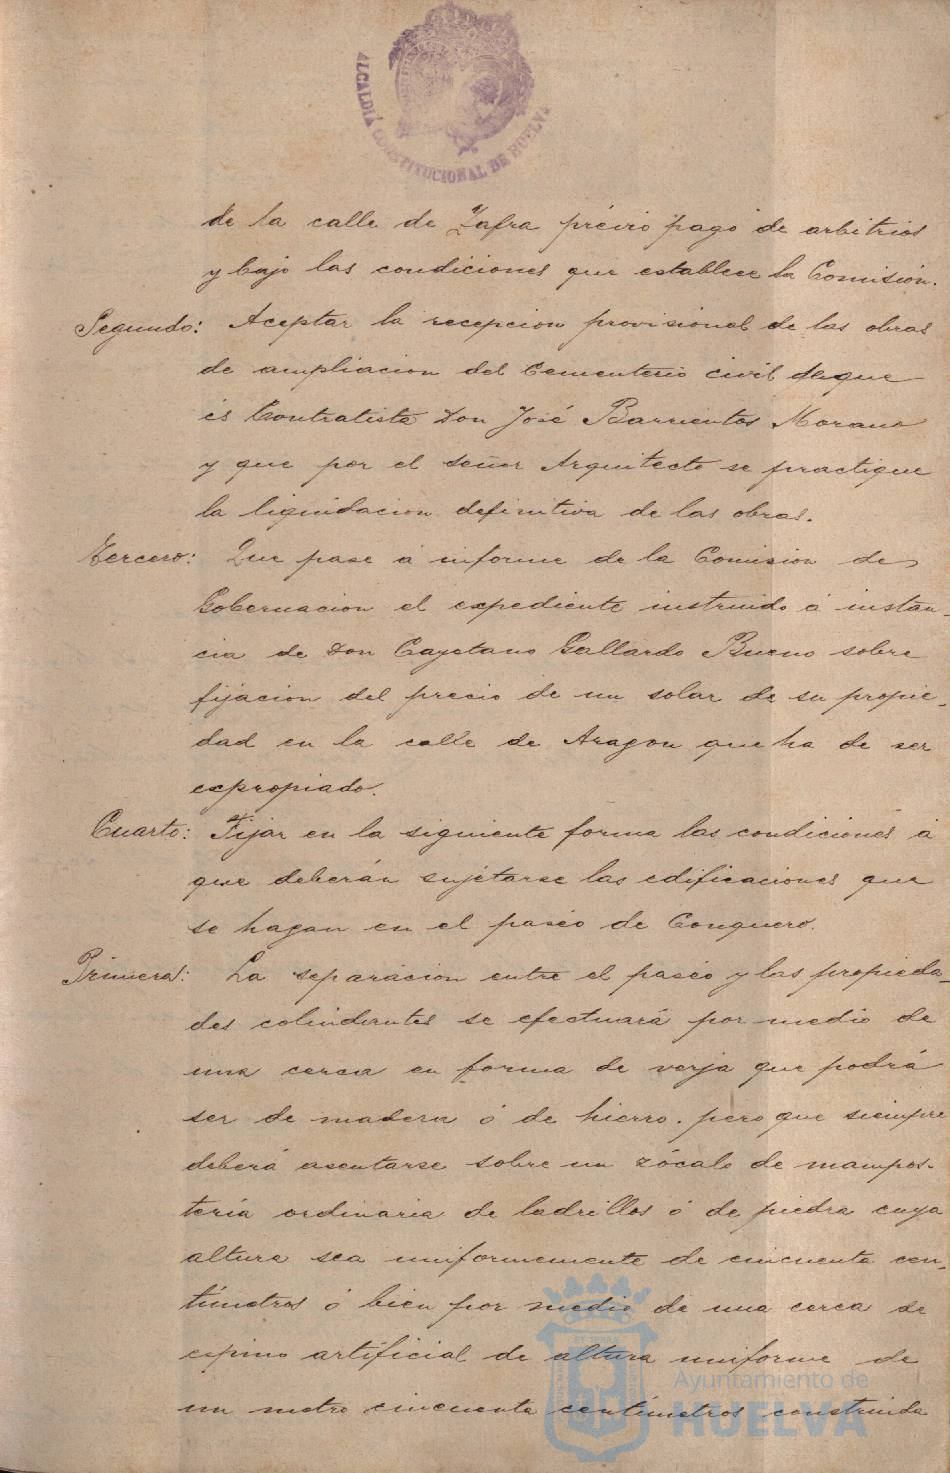 ALCALDIA CONSTITUCIONAL DE HUELVA
de la calle de Zafra prévio pago de arbitrios
y bajo las condiciones que establece la Comisión.
Segundo: Aceptar la recepcion provisional de las obras
de ampliacion del Cementerio civil de que
és Contratista Don José Barrientos Morano
y que por el señor Arquitecto se practique
la liquidacion definitiva de las obras.
Tercero: Que pase á informe de la Comision de
Gobernacion el expediente instruido á instan-
cia de Don Cayetano Gallardo Bueno sobre
fijacion del precio de un solar de su propie-
dad en la calle de Aragon que ha de ser
expropiado.
Cuarto: Fijar en la siguiente forma las condiciones á
que deberán sujetarse las edificaciones que
se hagan en el paséo de Conquero.
Primera: La separacion entre el paséo y las propieda-
des colindantes se efectuará por medio de
una cerca en forma de verja que podrá
ser de madera ó de hierro. pero que siempre
deberá asentarse sobre un zócalo de mampos-
tería ordinaria de ladrillos ó de piedra cuya
altura sea uniformemente de cincuenta cen-
tímetros ó bien por medio de una cerca de
espino artificial de altura uniforme de
un metro cincuenta centímetros construida
Ayuntamiento de
HUELVA